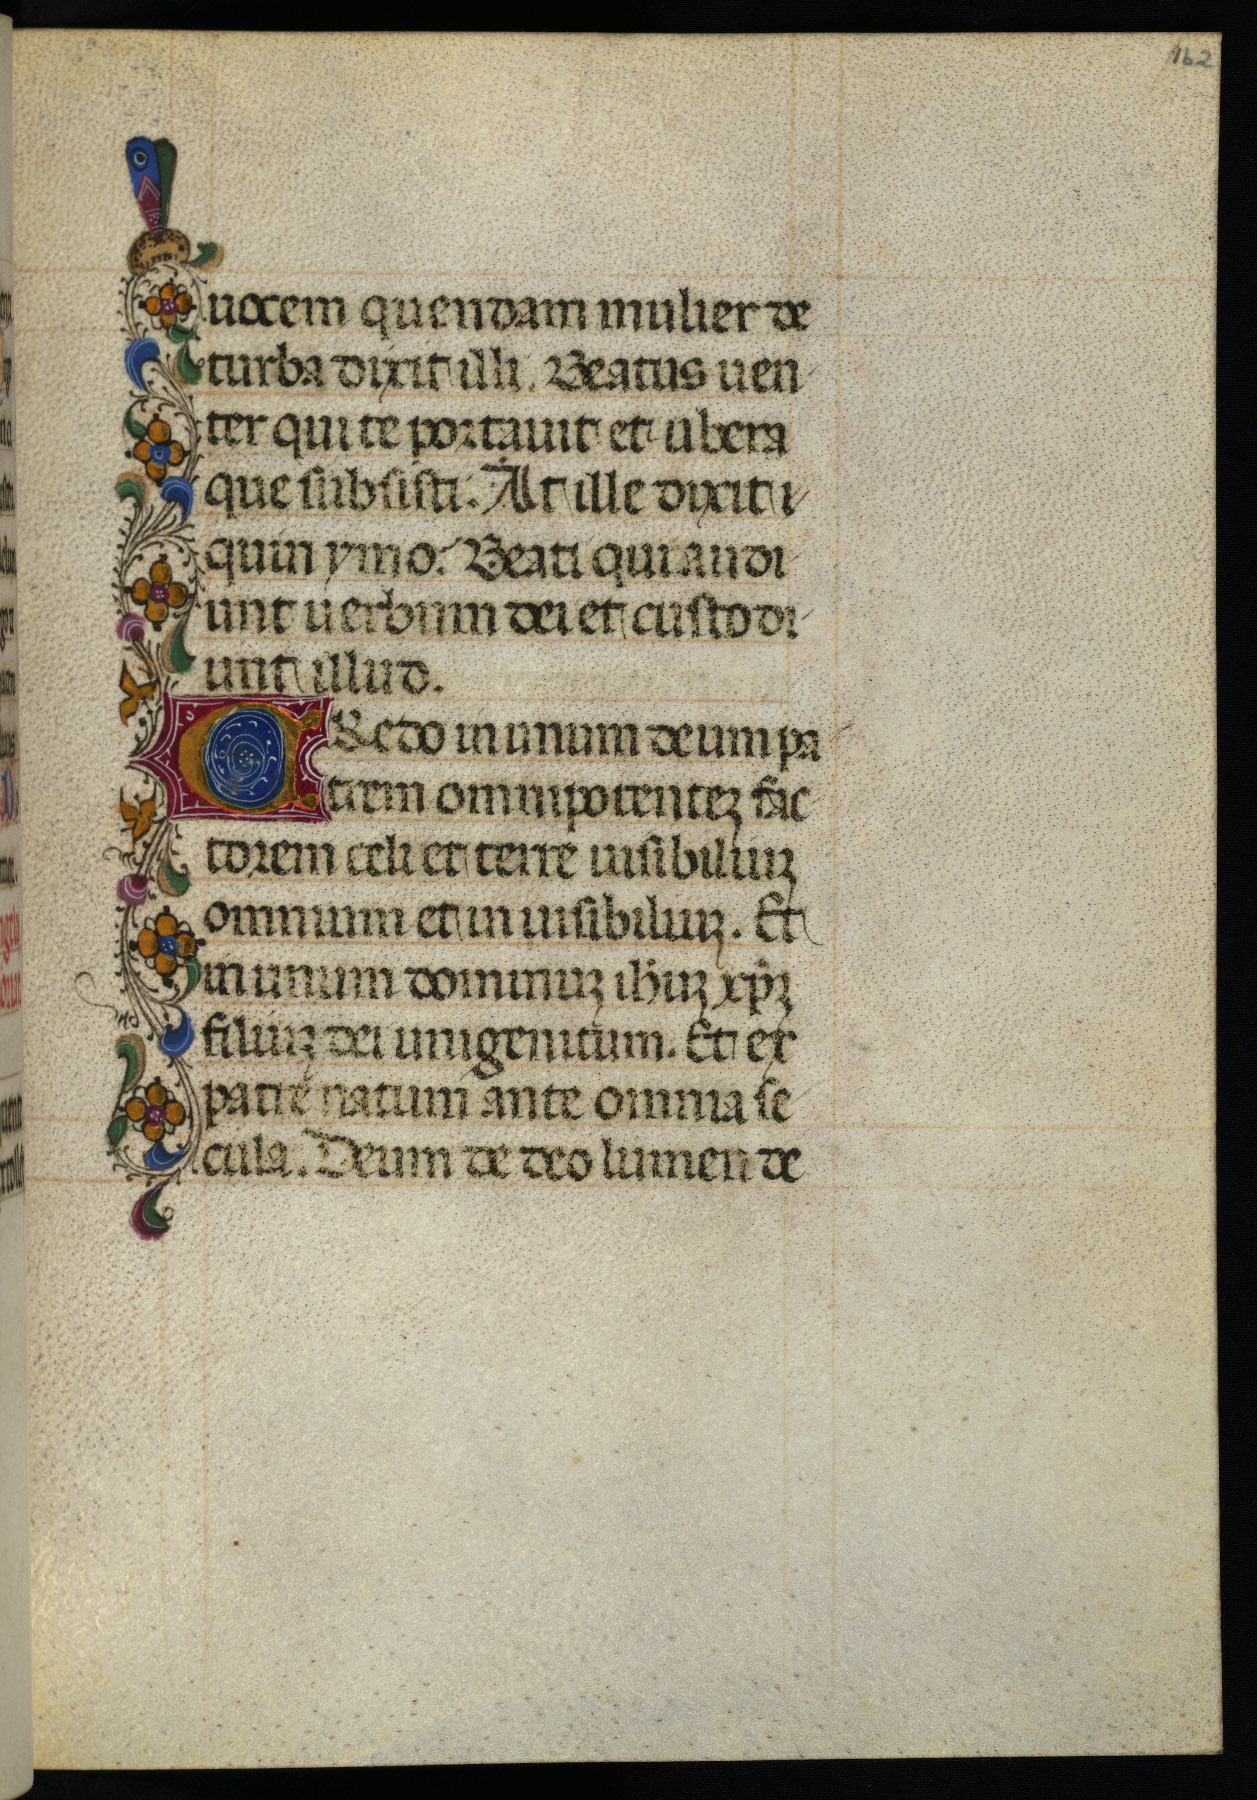 162
uocem quendam mulier de
turba dixit illi. Beatus uen
ter qui te portauit et ubera
que subsisti. At ille dixit i
quin ymo. Beati qui audi
unt uerbum dei et custodi
unt illud.
CRedo in unum deum pa
trem omnipotentez fac
torem celi et terre uisibiliuz
omnium et in uisibiliuz. Et
in unum dominuz ihuz xpz
filiuz dei unigenitum. Et ex
patre natum ante omnia se
cula. Deum de deo lumen de